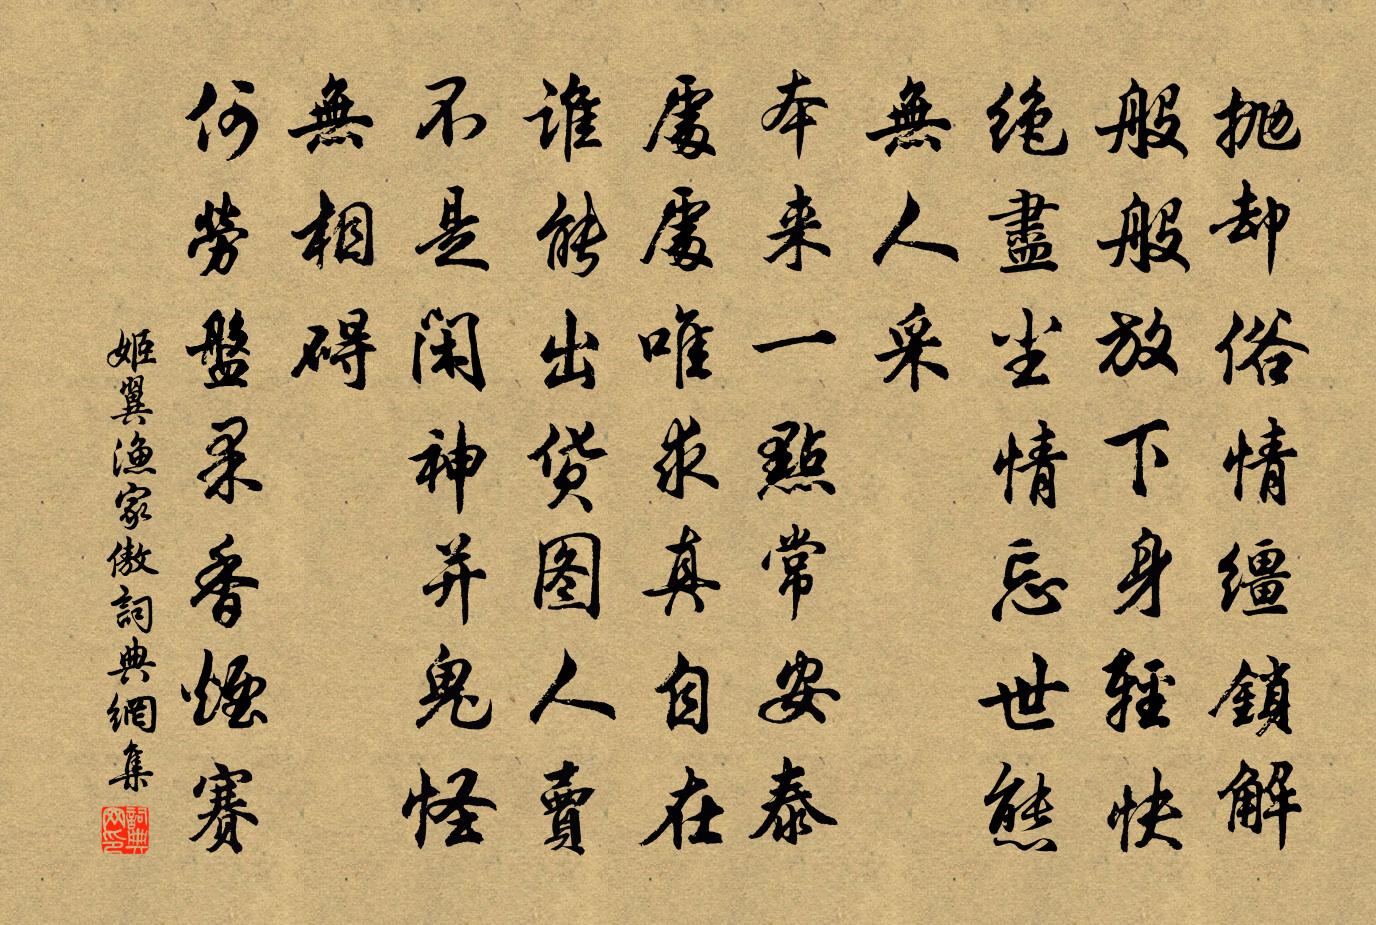 抛却俗情缰鎖解
般般放下身輕快
绝盡尘情忘世態
無人采
本来一點常安泰
處處唯求真自在
谁能出货图人賣
不是闲神并鬼怪
無相碍
何勞盤柔香煙賽
姬翼漁家傲詞典網集
詞典网印